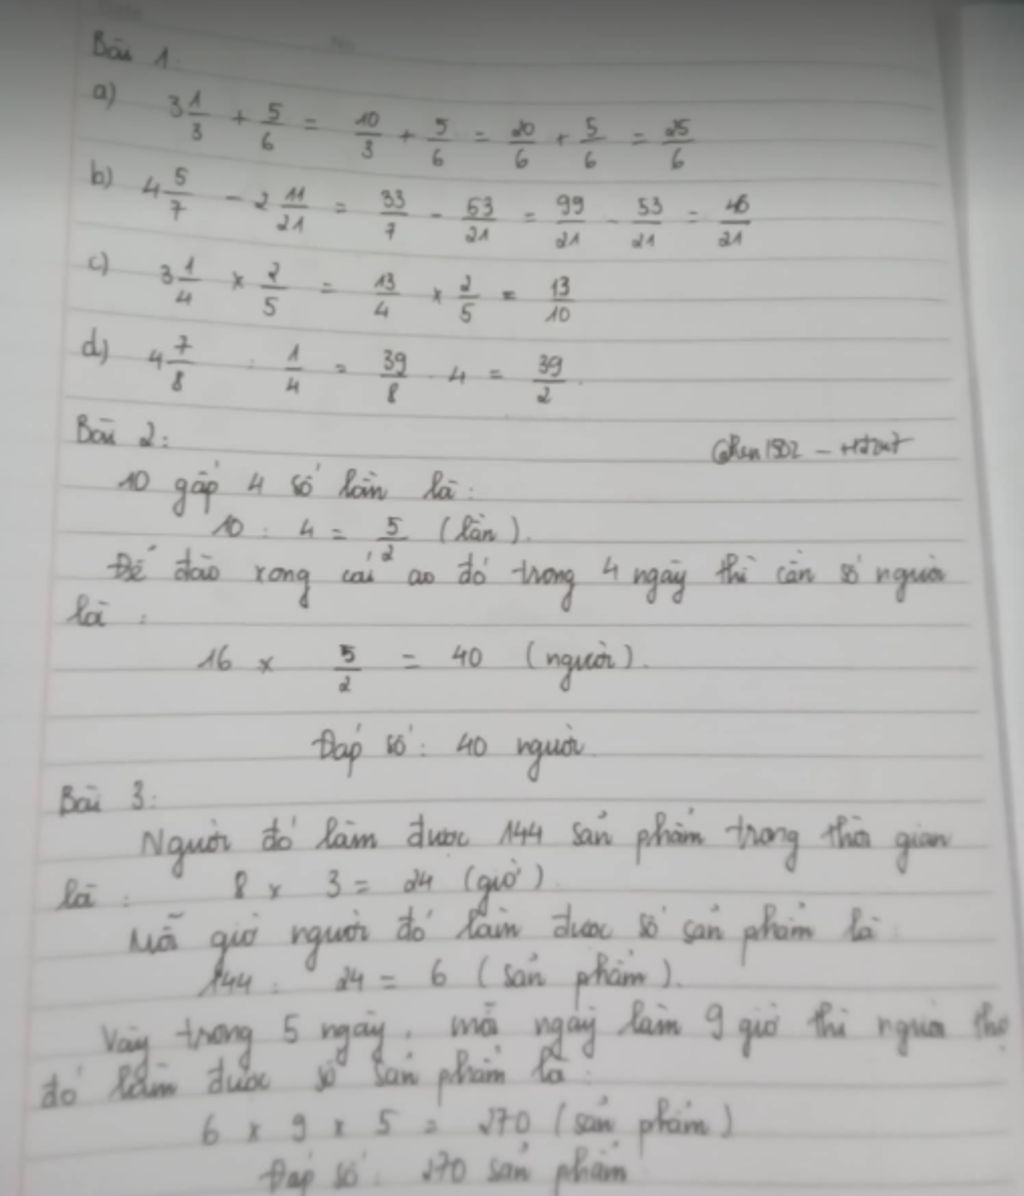 Bài 1:
a) 3 1/3 + 5/6 = 10/3 + 5/6 = 20/6 + 5/6 = 25/6
b) 4 5/7 - 2 11/21 = 33/7 - 53/21 = 99/21 - 53/21 = 46/21
c) 3 1/4 x 2/5 = 13/4 x 2/5 = 13/10
d) 4 7/8 : 1/4 = 39/8 . 4 = 39/2.
Bài 2:
10 gấp 4 số lần là:
10 : 4 = 5/2 (lần).
Để đào xong cái ao đó trong 4 ngày thì cần số người
là :
16 x 5/2 = 40 (người).
Đáp số: 40 người.
Bài 3:
Người đó làm được 144 sản phẩm trong thời gian
là : 8 x 3 = 24 (giờ)
Mỗi giờ người đó làm được số sản phẩm là:
144 : 24 = 6 (sản phẩm).
Vậy trong 5 ngày, mỗi ngày làm 9 giờ thì người thợ
đó làm được số sản phẩm là:
6 x 9 x 5 = 270 (sản phẩm)
Đáp số: 270 sản phẩm